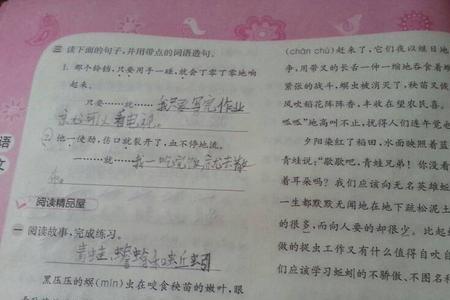 三 读下面的句子,并用带点的词语造句。
1. 那个铃铛,只要用手一碰,就会丁零丁零地响
起来。
只要……就……我只要写完作业
就可以看电视。
2. 他一使劲,伤口就裂开了,血不停地流。
一……就……我一吃完饭就去
阅读精品屋
一 阅读故事,完成练习。
青蛙,和蚯蚓
黑压压的螟(mín)虫在咬食秧苗的嫩叶,眼
(chǎn chú)赶来了,它们我以继日地
争,用带叉的长舌一伸一缩地吞食着螟
紧张的战斗,螟虫被消灭了,秧苗又恢
风吹稻花阵阵香,丰收在望农民喜。
呱呱"地高叫不止,扰得人们连午觉也
夕阳染红了稻田,水面映照着蓝
青蛙说:"歇歇吧,青蛙兄弟!你没看
着耳朵吗?我们应该向无名英雄蚯
一生都默默无闻地在地下疏松泥土
的很多,而向人要的却很少。比起蚯
做的捉虫工作又有什么值得自吹自
们应该学习蚯蚓的不骄傲、不图名利
语
文